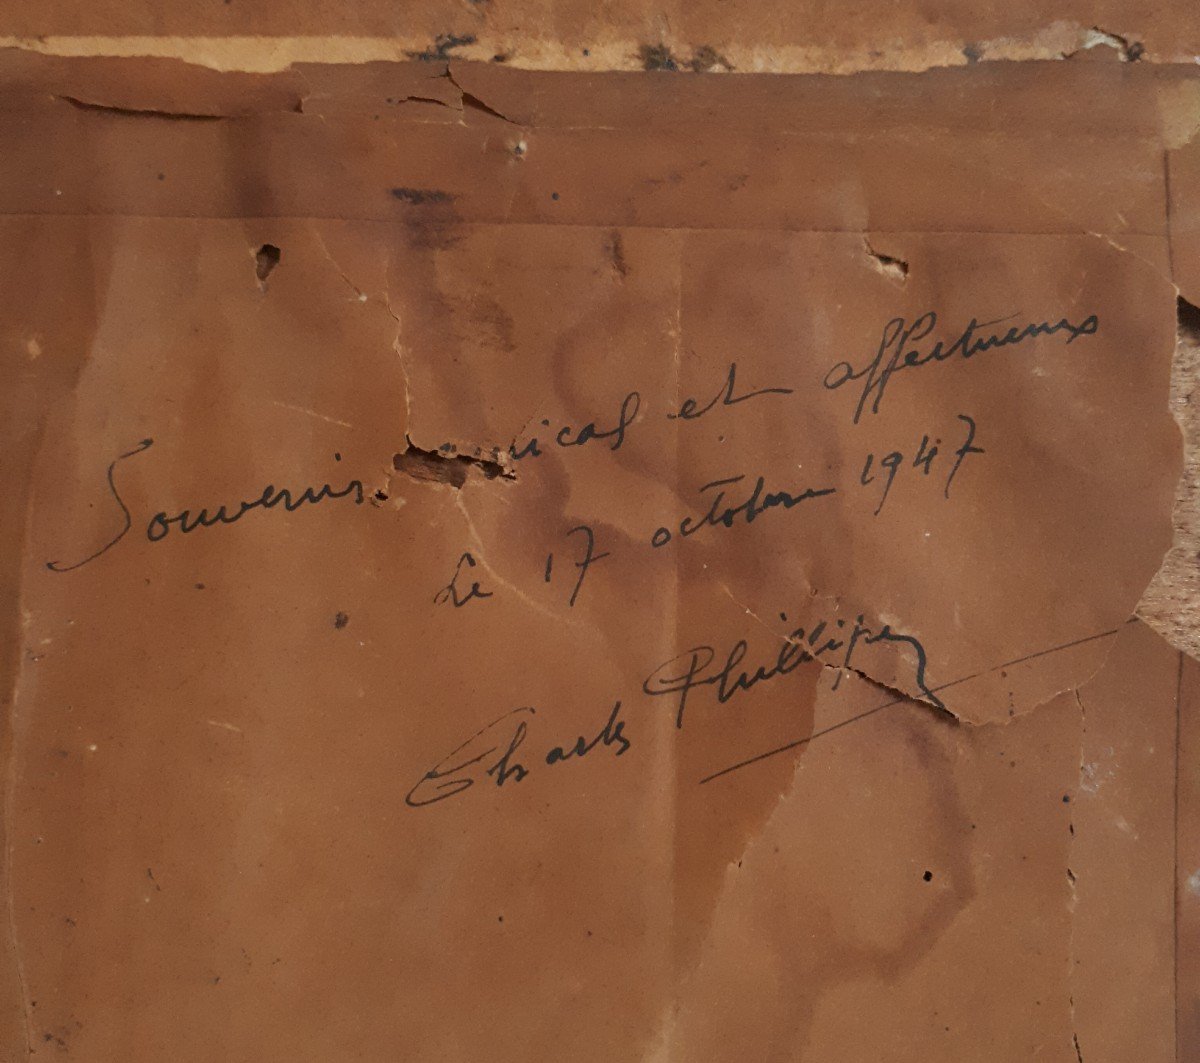 Souvenir amical et affectueux
Le 17 octobre 1947
Charles Phillipe